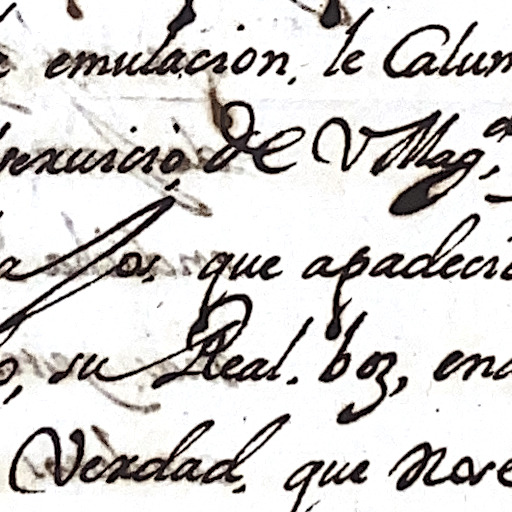 emulacion, le Calum
de VMag,d
que apadeci
su Real. boz, en
Verdad, que nose